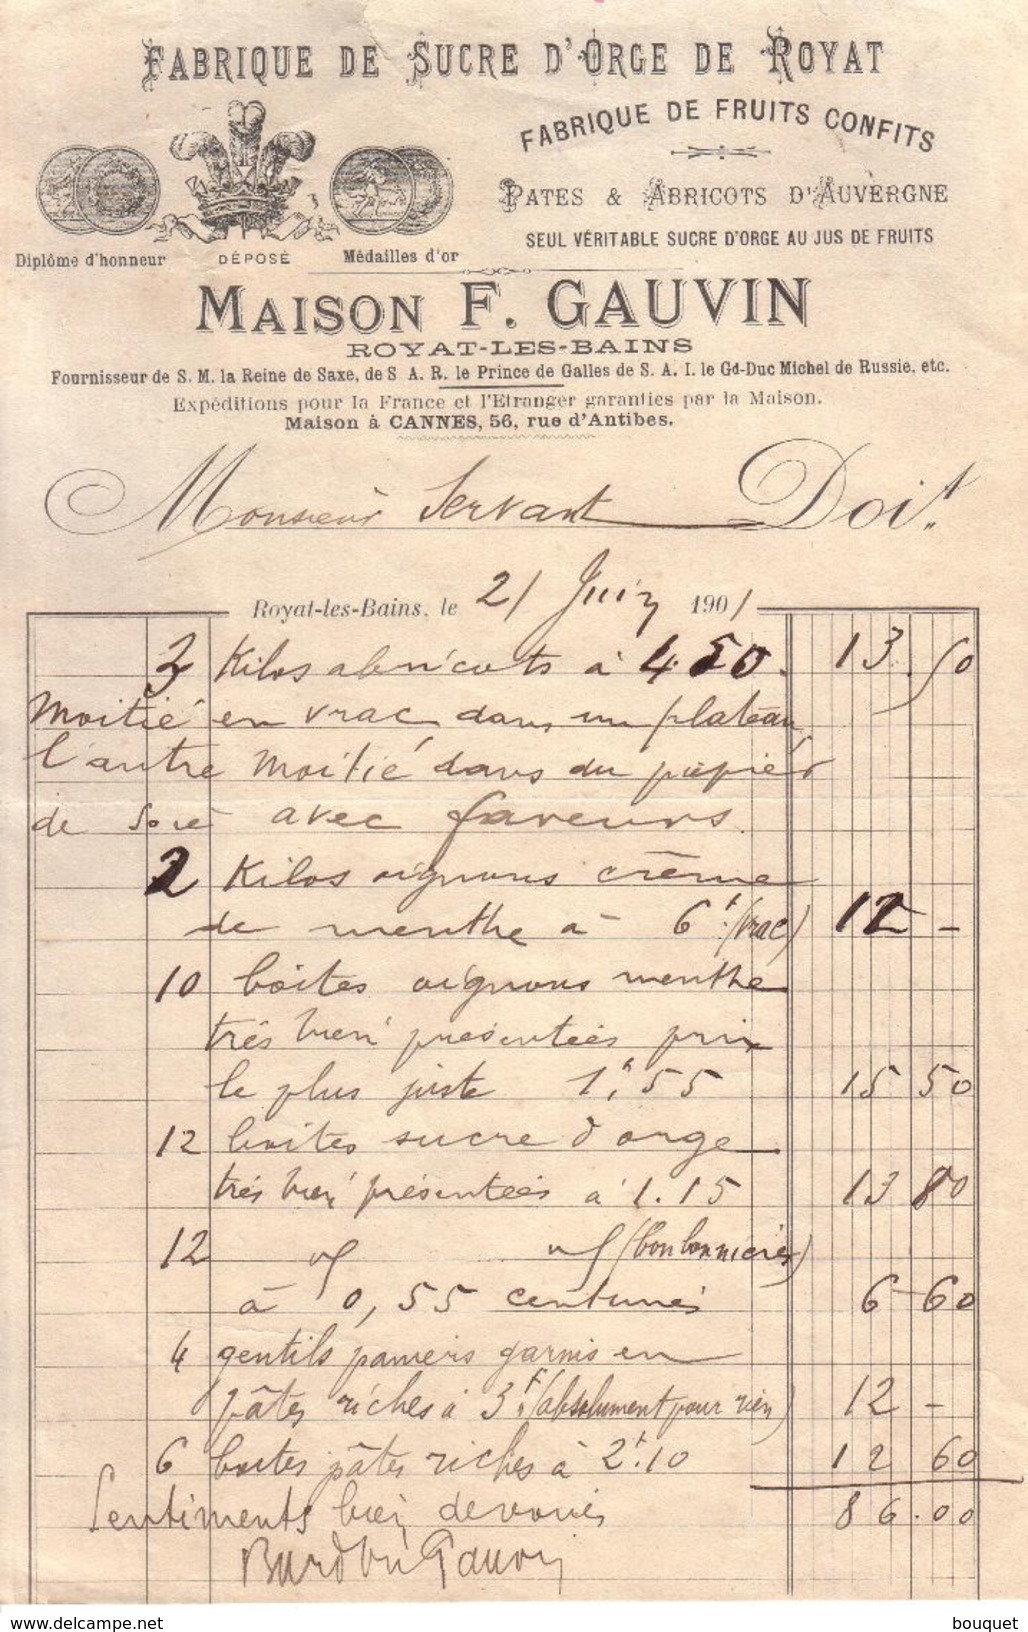 FABRIQUE DE SUCRE D'ORGE DE ROYAT
FABRIQUE DE FRUITS CONFITS
PATES & ABRICOTS D'AUVERGNE
SEUL VÉRITABLE SUCRE D'ORGE AU JUS DE FRUITS
Diplôme d'honneur DÉPOSÉ Médailles d'or
MAISON F. GAUVIN
ROYAT-LES-BAINS
Fournisseur de S. M. la Reine de Saxe, de S. A. R. le Prince de Galles de S. A. I. le Gd-Duc Michel de Russie, etc.
Expéditions pour la France et l'Etranger garanties par la Maison.
Maison à CANNES, 56, rue d'Antibes.
Monsieur Servant Doit
Royat-les-Bains, le 21 Juin 1901
3 Kilos abricots à 4.50 13.50
Moitié en vrac dans un plateau
l'autre Moitié dans du papier
de Soie avec faveurs
2 Kilos oignons crème
de menthe à 6f. (vrac) 12 -
10 boites oignons menthe
très bien présentées prix
le plus juste 1f,55 15 50
12 boites sucre d'orge
très bien présentées à 1.15 13 80
12 (bonbonnières)
à 0,55 centimes 6-60
4 gentils paniers garnis en
pâtes riches à 3f. (absolument pour rien) 12 -
6 boites pâtes riches à 2f.10 12 60
Sentiments bien dévoués 86.00
Gauvin
www.delcampe.net
bouquet_